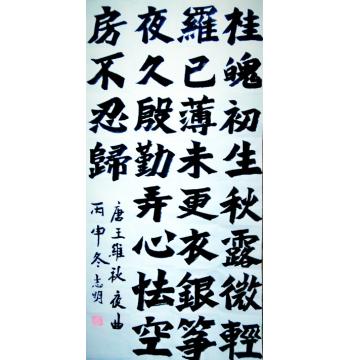 桂魄初生秋露微輕
羅已薄未更衣銀箏
夜久殷勤弄心怯空
房不忍歸
唐王維秋夜曲
丙申冬志明